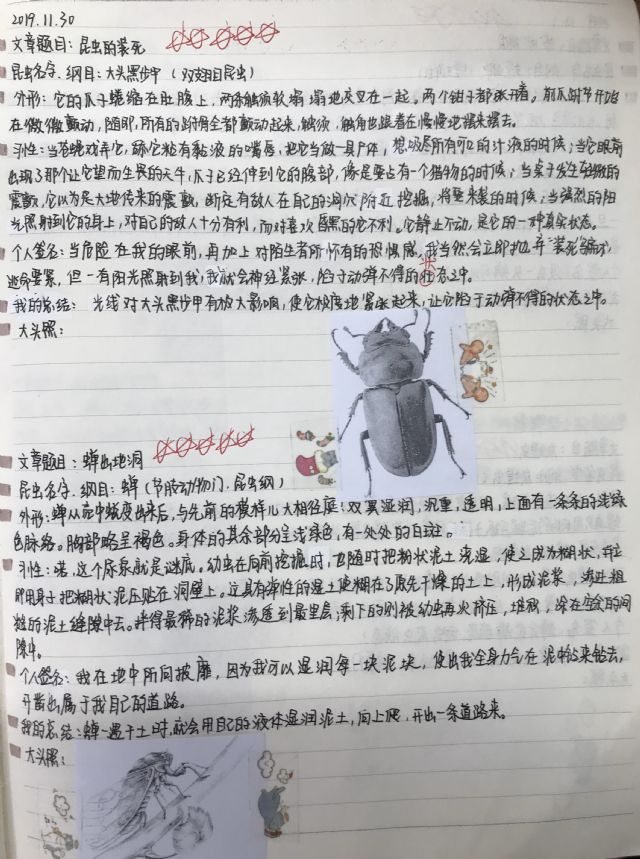 2019.11.30
文章题目：昆虫的装死
昆虫名字.纲目：大头黑步甲（双翅目昆虫）
外形：它的爪子蜷缩在肚腹上，两条触须软塌塌地交叉在一起。两个钳子都张开着。前爪跗节开始
在微微颤动，随即，所有的跗骨全都颤动起来，触须，触角也跟着在慢慢地摆来摆去。
习性：当苍蝇戏弄它，舔它粘有黏液的嘴唇，把它当做一具尸体，想吸尽所有可口的汁液的时候；当它眼前
出现了那个让它望而生畏的天牛，爪子已经伸到它的腹部，像是要占有一个猎物的时候；当桌子发生轻微的
震颤，它以为是大地传来的震颤，断定有敌人在自己的洞穴附近挖掘，将要来袭的时候；当强烈的阳
光照射到它的身上，对自己的敌人十分有利，而对喜欢昏黑的它不利。它静止不动，是它的一种真实状态。
个人签名：当危险在我的眼前，再加上对陌生者所怀有的恐惧感，我当然会立即抛弃"装死"骗术，
逃命要紧，但一有阳光照射到我，我就会神经紧张，陷于动弹不得的状态之中。
我的总结：光线对大头黑步甲有放大影响，使它极度地紧张起来，让它陷于动弹不得的状态之中。
大头照：
文章题目：蝉出地洞
昆虫名字.纲目：蝉（节肢动物门.昆虫纲）
外形：蝉从壳中蜕变出来后，与先前的模样儿大相径庭！双翼湿润，沉重，透明，上面有一条条的浅绿
色脉络。胸部略呈褐色。身体的其余部分呈浅绿色，有一处处的白斑。
习性：喏，这个尿泵就是谜底。幼虫在向前挖掘时，也随时把粉状泥土浇湿，使之成为糊状，并立
即用身子把糊状泥压贴在洞壁上。这具有弹性的湿土便糊在了原先干燥的土上，形成泥浆，渗进粗
糙的泥土缝隙中去。拌得最稀的泥浆渗透到最里层；剩下的则被幼虫再次挤压，堆积，涂在空余的间
隙中。
个人签名：我在地中所向披靡，因为我可以湿润每一块泥块，使出我全身力气在泥中钻来钻去，
开凿出属于我自己的道路。
我的总结：蝉一遇干土时，就会用自己的液体湿润泥土，向上爬，开出一条道路来。
大头照：